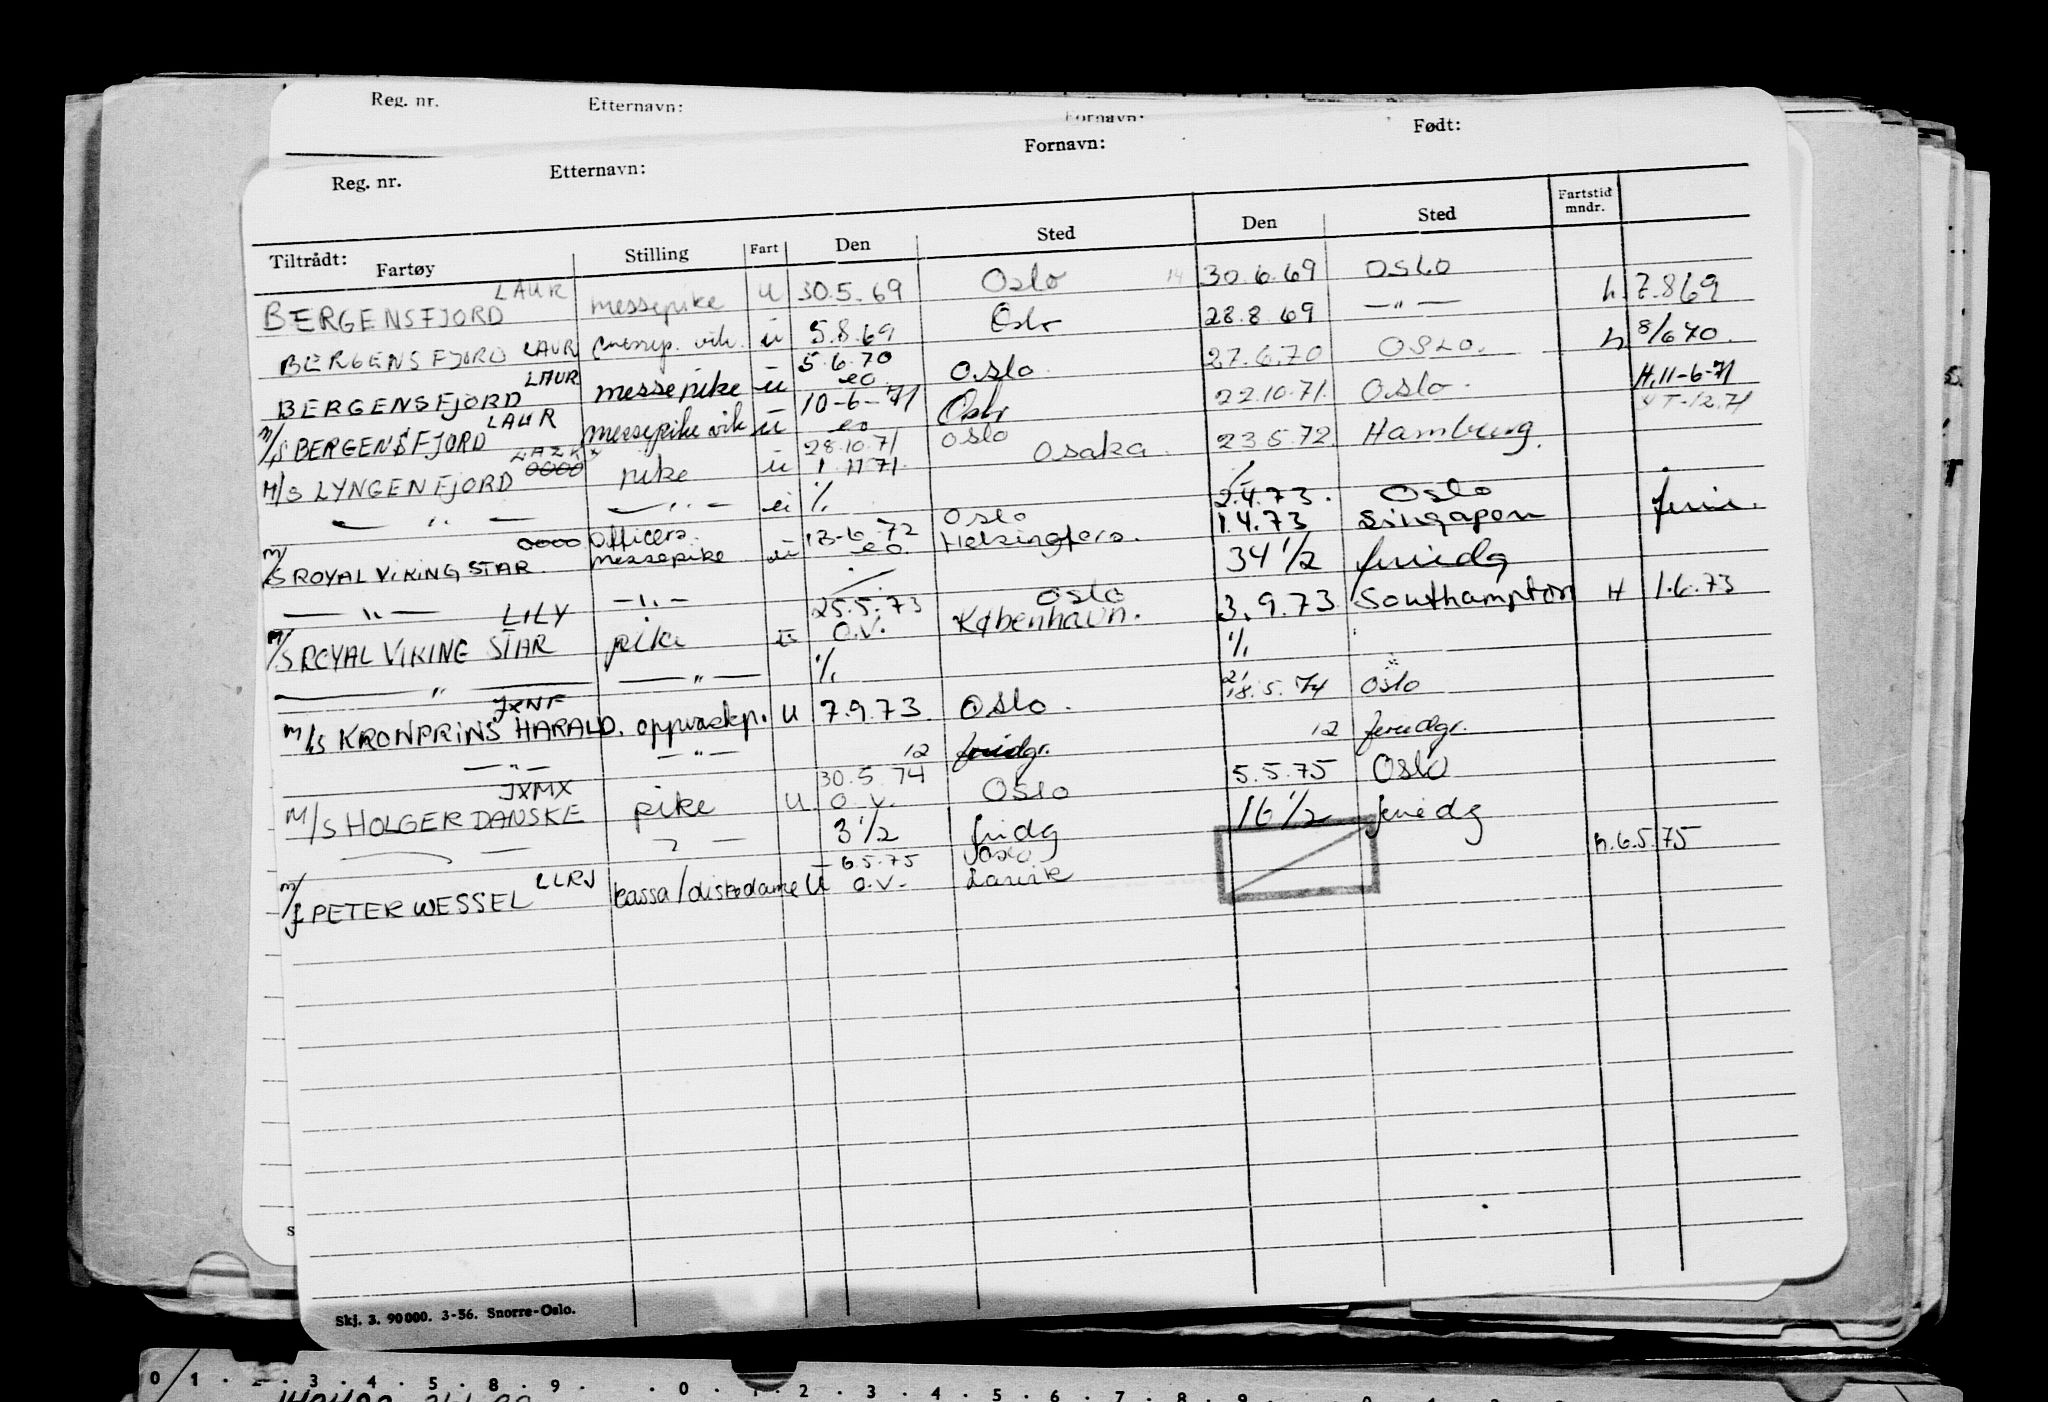 Reg. nr. Etternavn: Fornavn:
Reg. nr. Etternavn: Fornavn: Født:
Tiltrådt: Fartøy Stilling Fart Den Sted Den Sted Fartstid mndr.
BERGENSFJORD LAUR messepike U 30.5.69 Oslo 14 30.6.69 OSLO
BERGENSFJORD LAUR vik. u 5.8.69 Oslo 28.8.69 —"— h. 7.869
BERGENSFJORD LAUR messepike u 5.6.70 eo Oslo 27.6.70 OSLO. h 8/670.
M/S BERGENSFJORD LAUR messepike vik u 10-6-71 eo Oslo 22.10.71. Oslo. H.11-6-71
M/S LYNGENFJORD pike u 28.10.71 1.11.71. Oslo Osaka. 23.5.72 Hamburg.
—"— —"— u %. %
M/S ROYAL VIKING STAR 0000 Officers messepike u 13-6-72 eo. Oslo Helsingfors. 2.4.73. 1.4.73 Oslo Singapon
—"— —"— 34 1/2 feriedg
M/S ROYAL VIKING STAR LILY pike u 25.5.73 O.V. Oslo København. 3.9.73 Southampton H 1.6.73
—"— —"— %. %.
M/S KRONPRINS HARALD. JXNF oppvaskp. U 7.9.73 Oslo. 18.5.74 Oslo
—"— —"— 12 feriedgr. 12 feriedgr.
M/S HOLGER DANSKE JXMX pike U. 30.5.74 O.V. Oslo 5.5.75 Oslo
3 1/2 fridg 16 1/2 feriedg
M/F PETER WESSEL LLRJ kassa/diskedame U 6.5.75 O.V. Oslo Larvik h.6.5.75
Skj. 3. 90 000. 3-56. Snorre-Oslo.
0 1 2 3 4 5 8 9 0 1 2 3 4 5 6 7 8 9 0 1 2 3